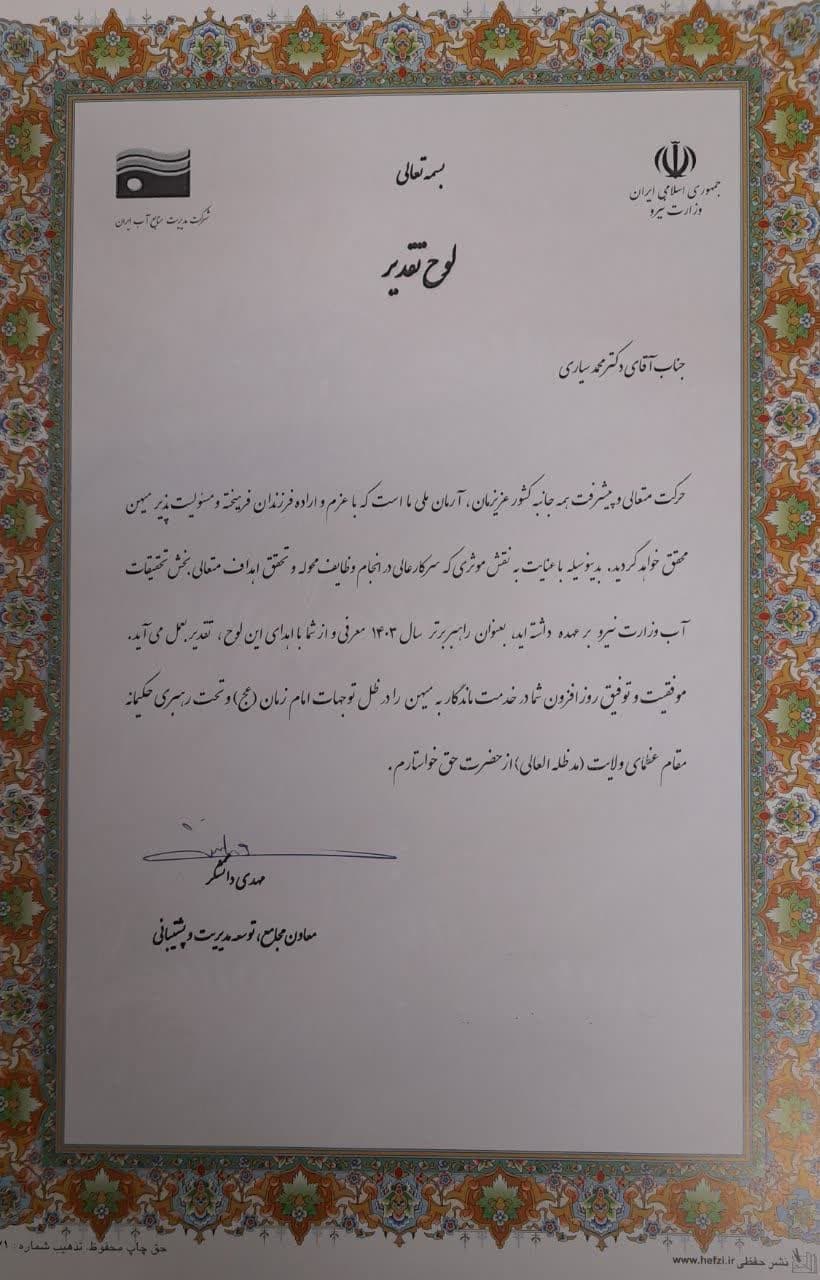 بسمه تعالی
جمهوری اسلامی ایران
وزارت نیرو
شرکت مدیریت منابع آب ایران
لوح تقدیر
جناب آقای دکتر محمد سیاری
حرکت متعالی و پیشرفت همه جانبه کشور عزیزمان، آرمان ملی ما است که با عزم و اراده فرزندان فرهیخته و مسئولیت پذیر میهن
محقق خواهد گردید. بدینوسیله با عنایت به نقش موثری که سرکارعالی در انجام وظایف محوله و تحقق اهداف متعالی بخش تحقیقات
آب وزارت نیرو بر عهده داشته اید، بعنوان راهبر برتر سال ۱۴۰۳ معرفی و از شما با اهدای این لوح، تقدیر بعمل می آید.
موفقیت و توفیق روز افزون شما در خدمت ماندگار به میهن را در ظل توجهات امام زمان (عج) و تحت رهبری حکیمانه
مقام عظمای ولایت (مد ظله العالی) از حضرت حق خواستارم.
مهدی دانشگر
معاون مجامع، توسعه مدیریت و پشتیبانی
حق چاپ محفوظ. تذهیب شماره :
نشر حفظی www.hefzi.ir